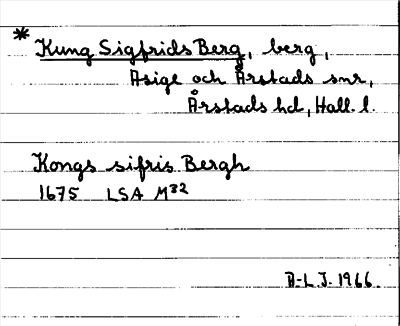 * Kung Sigfrids Berg, berg,
Asige och Årstads snr,
Årstads hd, Hall. l.
Kongs sifris Bergh
1675 LSA M32
A-L J. 1966.